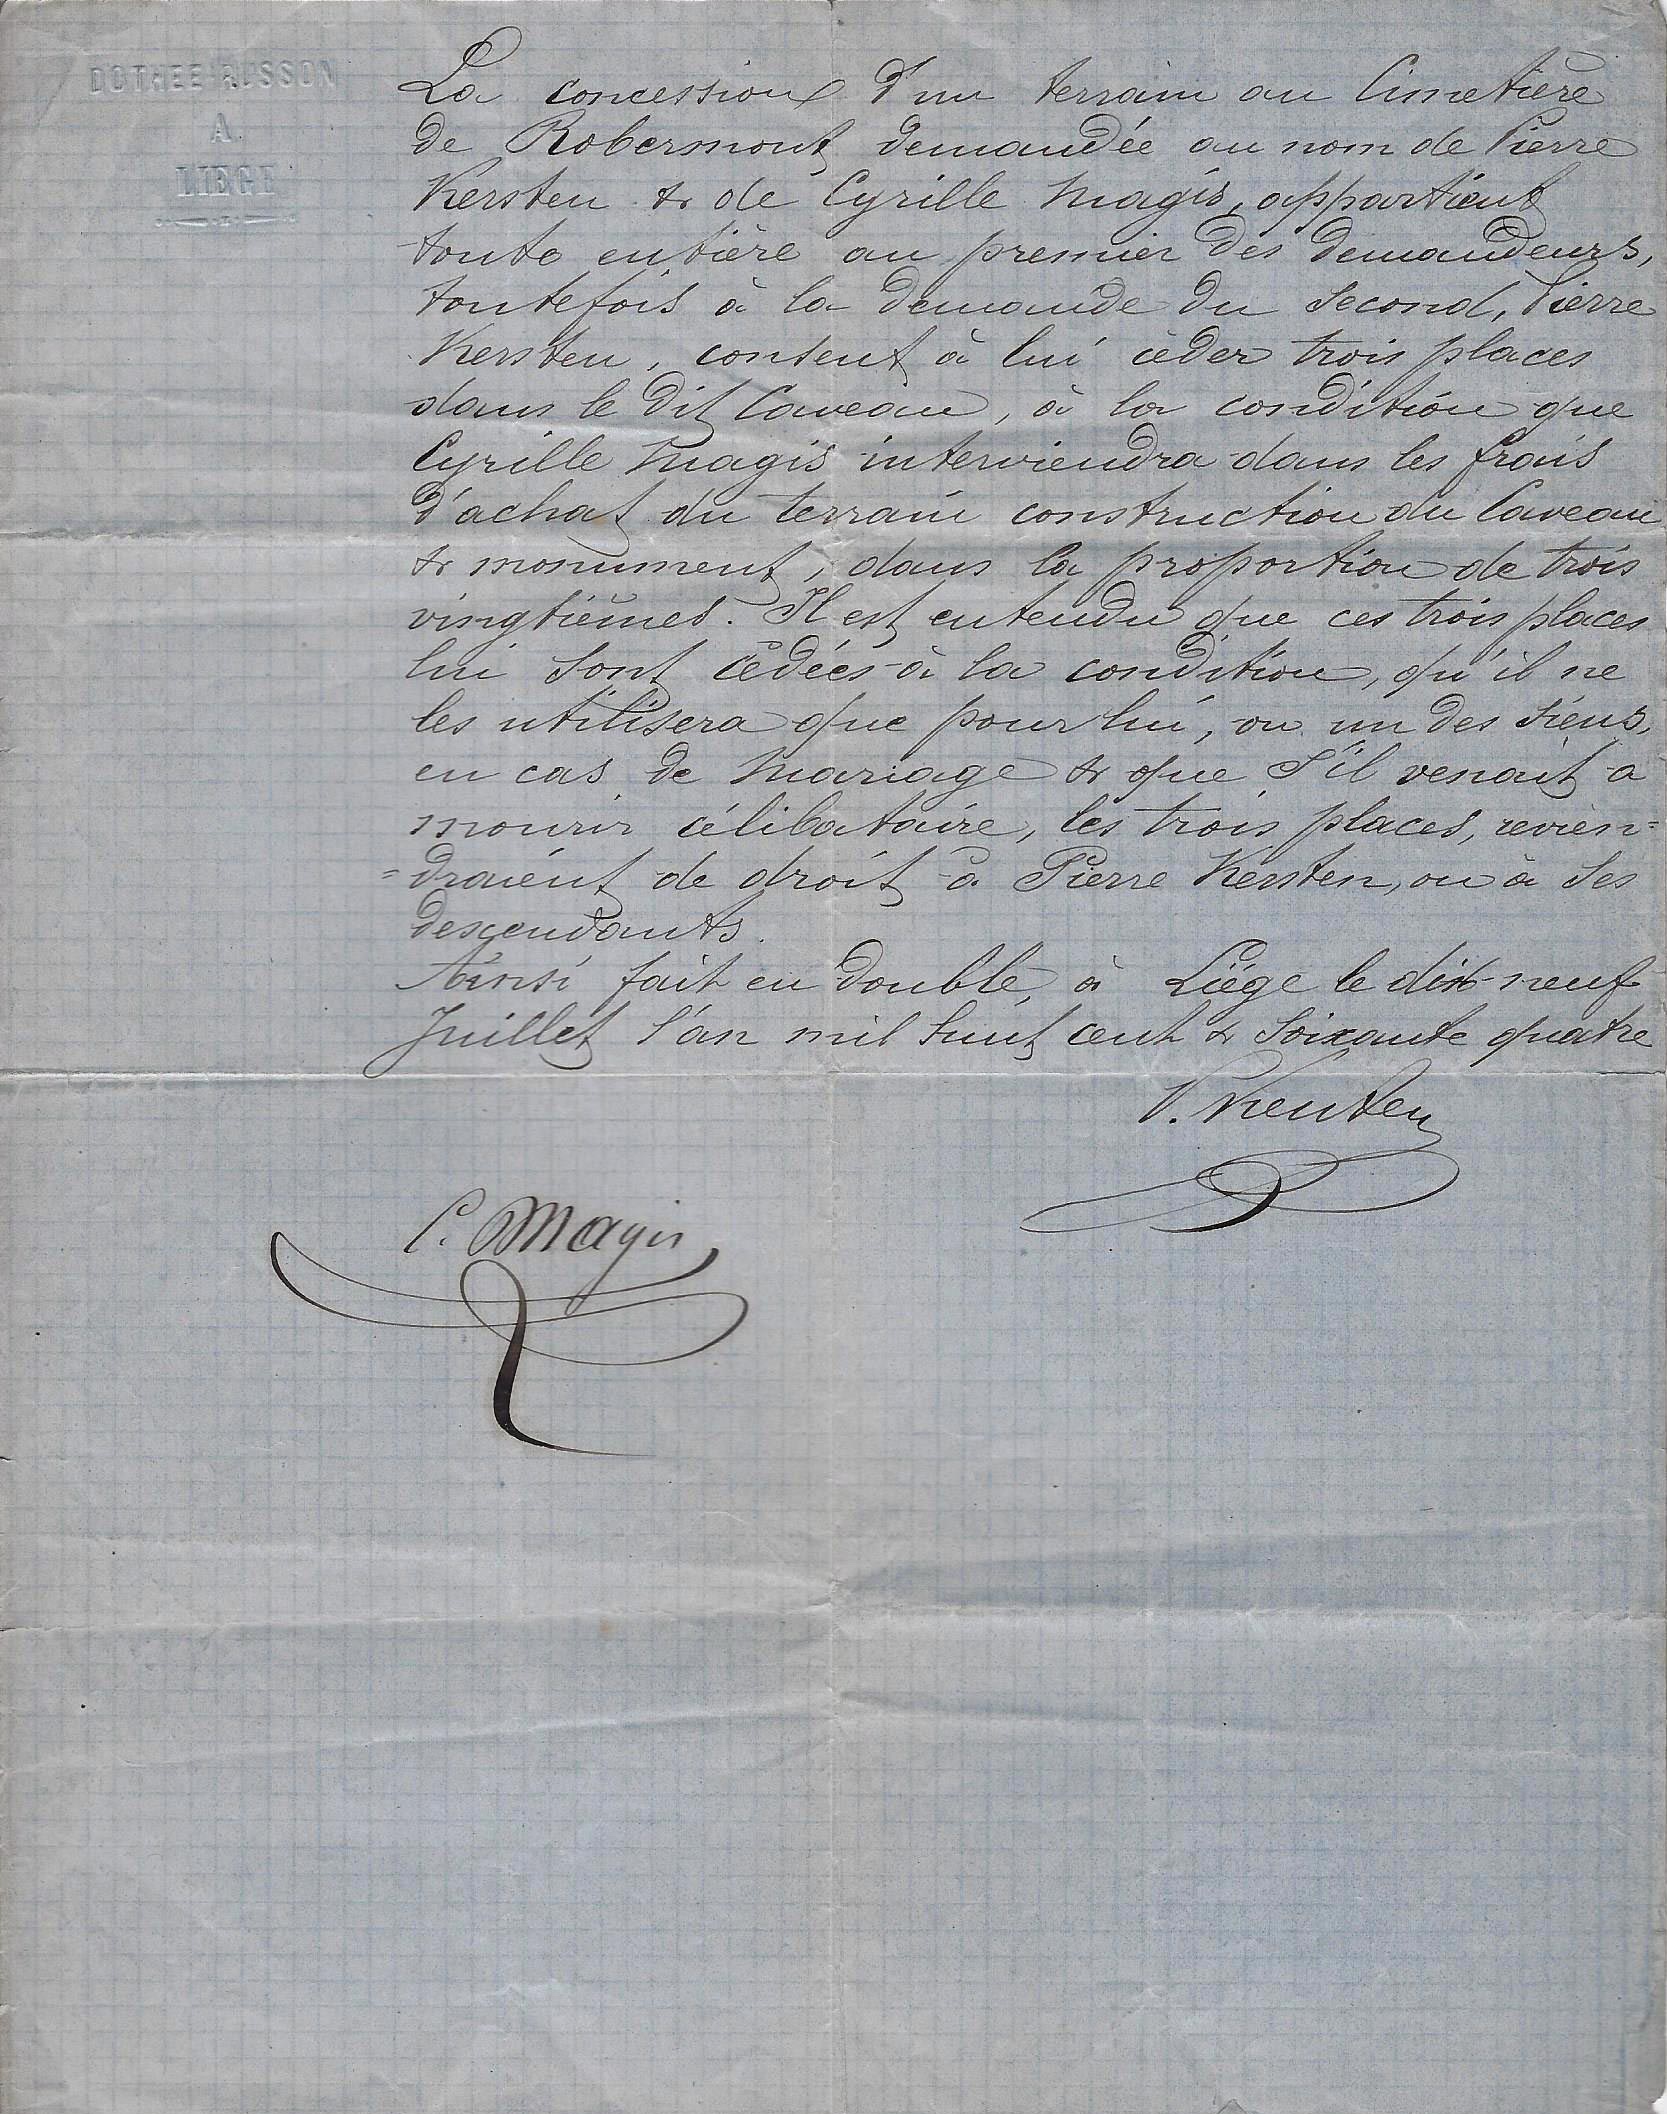 DOTHEE RUSSON
A
LIEGE
La concession d'un terrain au Cimetière
de Robermont demandée au nom de Pierre
Kersten & de Cyrille Magis, appartient
toute entière au premier des demandeurs,
toutefois à la demande du second, Pierre
Kersten, consent à lui céder trois places
dans le dit Caveau, à la condition que
Cyrille Magis interviendra dans les frais
d'achat du terrain construction du Caveau
& monument, dans la proportion de trois
vingtièmes. Il est entendu que ces trois places
lui sont cédées à la condition, qu'il ne
les utilisera que pour lui, ou un des siens,
en cas de Mariage & que s'il venait a
mourir célibataire, les trois places, revien=
=draient de droit à Pierre Kersten, ou à ses
descendants.
Ainsi fait en double, à Liége le dix-neuf
Juillet l'an mil huit cent & soixante quatre
P. Kersten
C. Magis